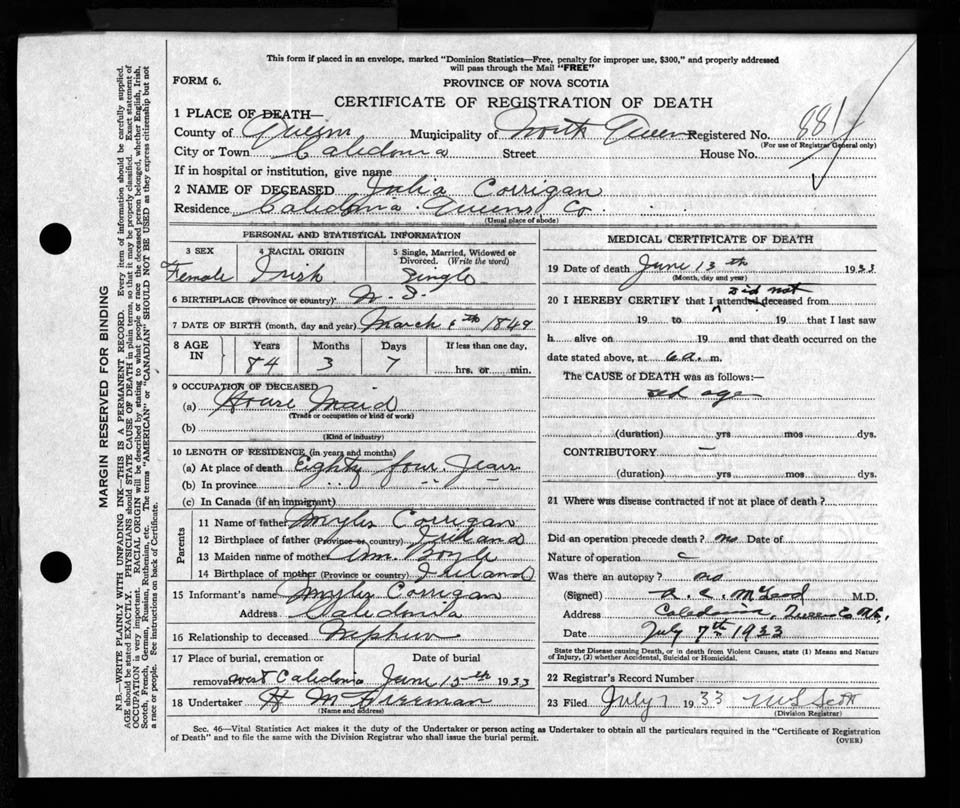 This form if placed in an envelope, marked "Dominion Statistics—Free, penalty for improper use, $300," and properly addressed
will pass through the Mail "FREE"
FORM 6.
PROVINCE OF NOVA SCOTIA
CERTIFICATE OF REGISTRATION OF DEATH
1 PLACE OF DEATH—
County of Queens Municipality of North Queens Registered No. 881
(For use of Registrar General only)
City or Town Caledonia Street House No.
If in hospital or institution, give name
2 NAME OF DECEASED Julia Corrigan
Residence Caledonia Queens Co.
(Usual place of abode)
PERSONAL AND STATISTICAL INFORMATION
3 SEX 4 RACIAL ORIGIN 5 Single, Married, Widowed or
Divorced. (Write the word)
Female Irish Single
6 BIRTHPLACE (Province or country) N. S.
7 DATE OF BIRTH (month, day and year) March 6th 1849
8 AGE IN Years Months Days If less than one day,
84 3 7 hrs. or min.
9 OCCUPATION OF DECEASED
(a) House Maid
(Trade or occupation or kind of work)
(b)
(Kind of industry)
10 LENGTH OF RESIDENCE (in years and months)
(a) At place of death Eighty four Years
(b) In province
(c) In Canada (if an immigrant)
Parents
11 Name of father Myles Corrigan
12 Birthplace of father (Province or country) Ireland
13 Maiden name of mother Ann Boyle
14 Birthplace of mother (Province or country) Ireland
15 Informant's name Myles Corrigan
Address Caledonia
16 Relationship to deceased Nephew
17 Place of burial, cremation or Date of burial
removal West Caledonia June 15th 1933
18 Undertaker H M Freeman
(Name and address)
MEDICAL CERTIFICATE OF DEATH
19 Date of death June 13th 1933
(Month, day and year)
did not
20 I HEREBY CERTIFY that I attended deceased from
19 to 19 that I last saw
h alive on 19 and that death occurred on the
date stated above, at 6 a. m.
The CAUSE of DEATH was as follows:—
old age
(duration) yrs mos dys.
CONTRIBUTORY —
(duration) yrs mos dys.
21 Where was disease contracted if not at place of death?
Did an operation precede death? no Date of
Nature of operation
Was there an autopsy? no
(Signed) A. C. McLeod M.D.
Address Caledonia, Queens Co N.S.
Date July 7th 1933
State the Disease causing Death, or in death from Violent Causes, state (1) Means and Nature
of Injury, (2) whether Accidental, Suicidal or Homicidal.
22 Registrar's Record Number
23 Filed July 7 1933 M S Scott
(Division Registrar)
Sec. 46—Vital Statistics Act makes it the duty of the Undertaker or person acting as Undertaker to obtain all the particulars required in the "Certificate of Registration
of Death" and to file the same with the Division Registrar who shall issue the burial permit.
(OVER)
MARGIN RESERVED FOR BINDING
N.B.—WRITE PLAINLY WITH UNFADING INK—THIS IS A PERMANENT RECORD. Every item of information should be carefully supplied.
AGE should be stated EXACTLY. PHYSICIANS should STATE CAUSE OF DEATH in plain terms, so that it may be properly classified. Exact statement of
OCCUPATION is very important. RACIAL ORIGIN will be described by stating to what people or race the deceased person belonged, whether English, Irish,
Scotch, French, German, Russian, Ruthenian, etc. The terms "AMERICAN" or "CANADIAN" SHOULD NOT BE USED as they express citizenship but not
a race or people. See instructions on back of Certificate.